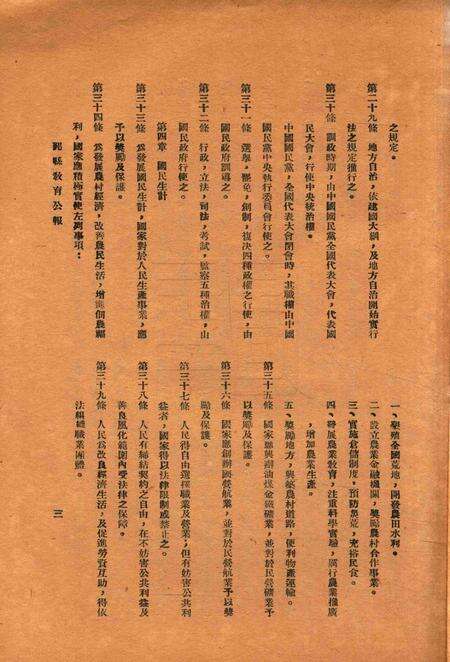 之規定。
第二十九條　地方自治，依建國大綱，及地方自治開始實行
法之規定推行之。
第三十條　訓政時期，由中國國民黨全國代表大會，代表國
民大會，行使中央統治權。
中國國民黨，全國代表大會閉會時，其職權由中國
國民黨中央執行委員會行使之。
第三十一條　選舉，罷免，創制，復决四種政權之行使，由
國民政府訓導之。
第三十二條　行政，立法，司法，考試，監察五種治權，由
國民政府行使之。
第四章　國民生計
第三十三條　為發展國民生計，國家對於人民生產事業，應
予以獎勵及保護。
第三十四條　為發展農村經濟，改善農民生活，增進佃農福
利，國家應積極實施左列事項：
縣教育公報
一、墾殖全國荒地，開發農田水利。
二、設立農業金融機關，獎勵農村合作事業。
三、實施倉儲制度，預防災荒，充裕民食。
四、發展農業教育，注重科學實驗，厲行農業推廣
，增加農業生產。
五、獎勵地方，興築農村道路，便利物產運輸。
第三十五條　國家應興辦油煤金鐵礦業，並對於民營礦業予
以獎勵及保護。
第三十六條　國家應創辦國營航業，並對於民營航業予以獎
勵及保護。
第三十七條　人民得自由選擇職業及營業，但有妨害公共利
益者，國家得以法律限制或禁止之。
第三十八條　人民有締結契約之自由，在不妨害公共利益及
善良風化範圍內受法律之保障。
第三十九條　人民為改良經濟生活，及促進勞資互助，得依
法組織職業團體。
三